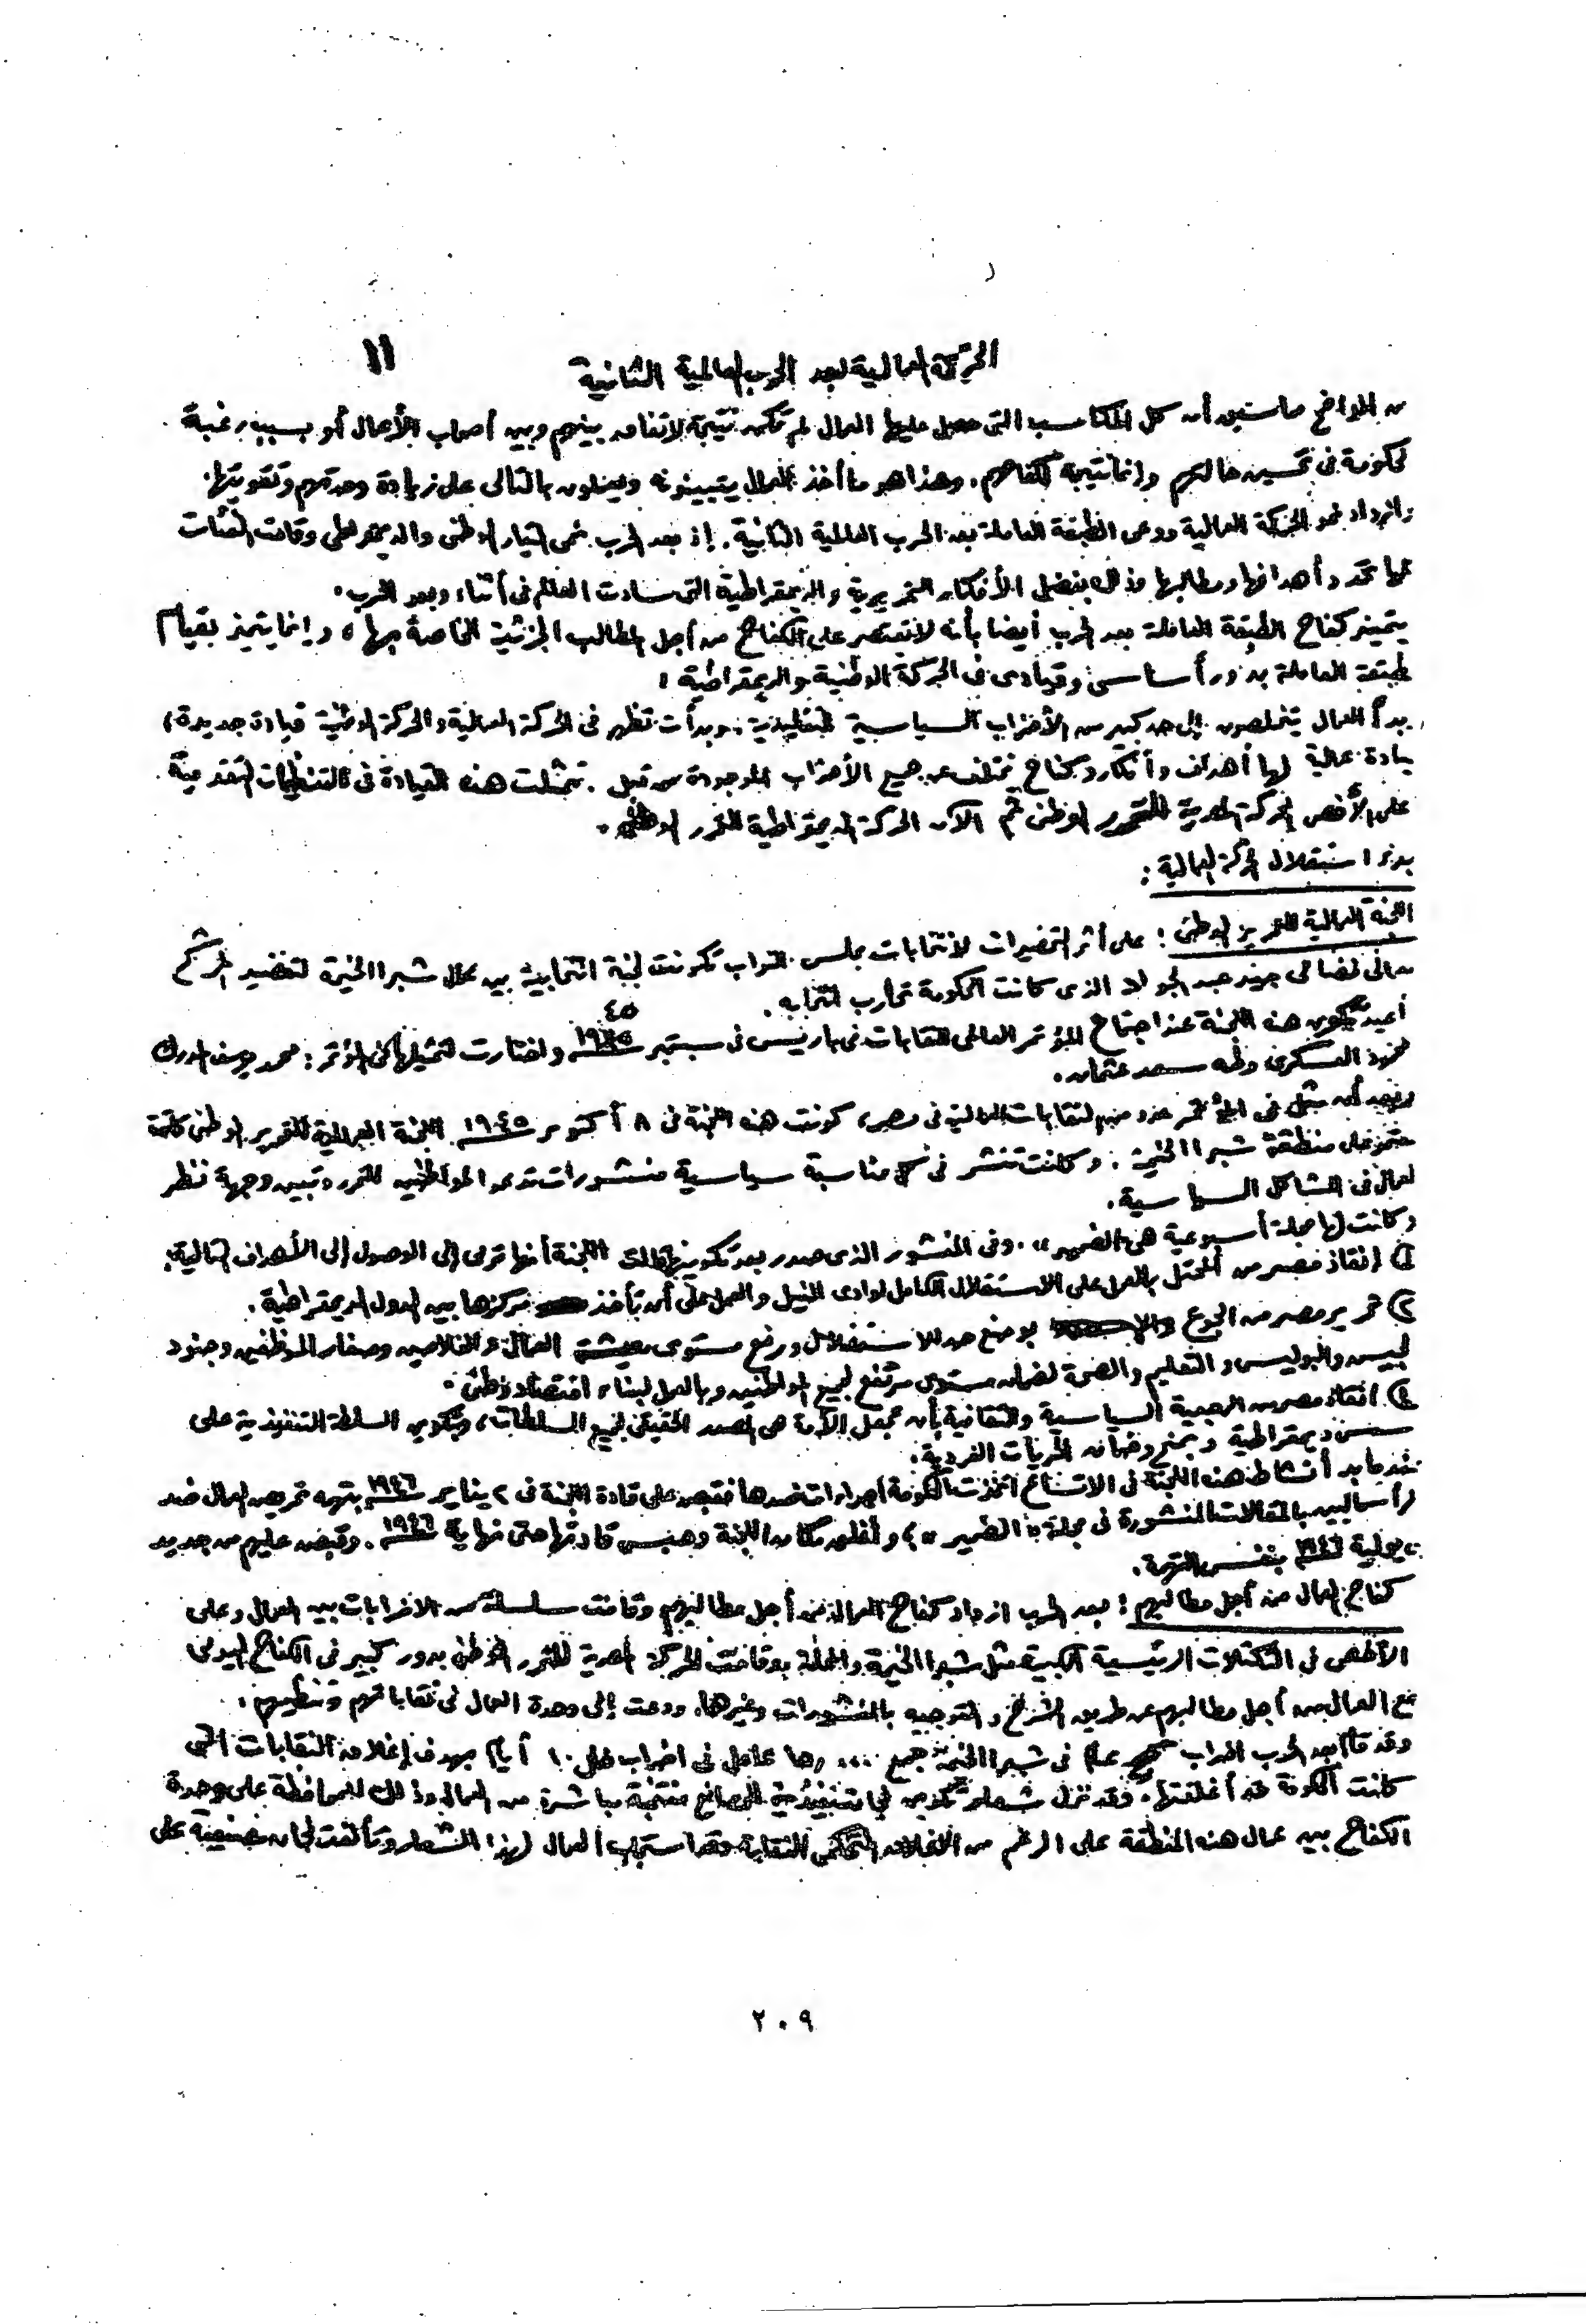 ١١
الحركة العمالية بعد الحرب العالمية الثانية
من الواضح مما سبق أن كل المكاسب التى حصل عليها العمال لم تكن نتيجة لاتفاق بينهم وبين أصحاب الأعمال أو بسبب رغبة
لحكومة فى تحسين حالتهم وإنما نتيجة لكفاحهم. وهذا هو ما أخذ العمال يتبينونه ويعملون بالتالى على زيادة وحدتهم وتقويتها.
وازداد نمو الحركة العمالية ووعى الطبقة العاملة بعد الحرب العالمية الثانية. إذ بعد الحرب نمى التيار الوطنى والديمقراطى وقامت الفئات
كلها تحدد أهدافها ومطالبها وذلك بفضل الأفكار التحريرية والديمقراطية التى سادت العالم فى أثناء وبعد الحرب.
يتميز كفاح الطبقة العاملة بعد الحرب أيضا بأنه لا يقتصر على الكفاح من أجل المطالب الجزئية الخاصة بها، وإنما يتميز بقيام
لطبقة العاملة بدور أساسى وقيادى فى الحركة الوطنية والديمقراطية:
بدأ العمال يتخلصون إلى حد كبير من الأحزاب السياسية التقليدية، وبدأت تظهر فى الحركة العمالية والحركة الوطنية قيادة جديدة،
يادة عمالية لها أهداف وأفكار وكفاح يختلف عن جميع الأحزاب الموجودة من قبل. تمثلت هذه القيادة فى التنظيمات التقدمية
على الأخص الحركة المصرية للتحرر الوطنى ثم الآن الحركة الديمقراطية للتحرر الوطنى.
بدء استقلال الحركة العمالية:
اللجنة العمالية للتحرير الوطنى: على أثر التحضيرات لانتخابات مجلس النواب تكونت لجنة انتخابية بين عمال شبرا الخيمة لتعضيد المرشح
عمالى فضالى عبد الجواد الذى كانت الحكومة تحارب انتخابه.
أعيد تكوين هذه اللجنة عند اجتماع المؤتمر العالمى للنقابات فى باريس فى سبتمبر سنة ١٩٤٥ واختارت لتمثيلها فى المؤتمر: محمد يوسف المدرك
محمود العسكرى وطه سعد عثمان.
وبعد أن مثل فى المؤتمر عدد من النقابات العمالية فى مصر، كونت هذه اللجنة فى ٨ أكتوبر سنة ١٩٤٥ اللجنة العمالية للتحرير الوطنى
منطقة شبرا الخيمة. وكانت تنشر فى كل مناسبة سياسية منشورات تدعو المواطنين للتحرر وتبين وجهة نظر
لعمال فى المشاكل السياسية.
وكانت لها مجلة أسبوعية هى «الضمير». وفى المنشور الذى صدر بعد تكوينها قالت اللجنة أنها ترمى إلى الوصول إلى الأهداف التالية:
١) إنقاذ مصر من المحتل بالعمل على الاستقلال الكامل لوادى النيل والعمل على أن تأخذ مركزها بين الدول الديمقراطية.
٢) تحرير مصر من الجوع بوضع حد للاستغلال ورفع مستوى معيشة العمال والفلاحين وصغار الموظفين وجنود
لجيش والبوليس والتعليم والصحة لضمان مستوى مرتفع لجميع المواطنين وبالعمل لبناء اقتصاد وطنى.
انقاذ مصر من الرجعية السياسية والثقافية بأن تجعل الأمة هى المصدر الحقيقى لجميع السلطات، وبتكوين السلطة التنفيذية على
أسس ديمقراطية وبمنح وضمان الحريات الفردية.
عندما بدأ نشاط هذه اللجنة فى الاتساع اتخذت الحكومة إجراءات ضدها فقبض على قادة اللجنة فى ٢ يناير سنة ١٩٤٦ بتهمة تحريض العمال ضد
لرأسماليين بالمقالات المنشورة فى مجلة «الضمير»، وأغلق مكان اللجنة وحبس قادتها حتى نهاية سنة ١٩٤٦. وقبض عليهم من جديد
يولية سنة ١٩٤٦ بنفس التهمة.
كفاح العمال من أجل مطالبهم: بعد الحرب ازداد كفاح العمال من أجل مطالبهم وقامت سلسلة من الاضرابات بين العمال وعلى
الأخص فى التكتلات الرئيسية الكبيرة مثل شبرا الخيمة والمحلة وقامت الحركة المصرية للتحرر الوطنى بدور كبير فى الكفاح اليومى
مع العمال من أجل مطالبهم عن طريق الشرح والتوجيه بالمنشورات وغيرها. ودعت إلى وحدة العمال فى نقاباتهم وتنظيمهم.
وقد قام بعد الحرب اضراب عمال فى شبرا الخيمة جميع عامل فى اضراب ظل ١٠ أيام بهدف إغلاق النقابات التى
كانت الحكومة قد أغلقتها. فقد نزل شعار تكوين لجان تنفيذية للمصانع منتخبة مباشرة من العمال وذلك للمحافظة على وحدة
الكفاح بين عمال هذه المنطقة على الرغم من الاغلاق التحكمى للنقابة وقد استجاب العمال لهذا الشعار وتألفت لجان مصنعية على
٢٠٩